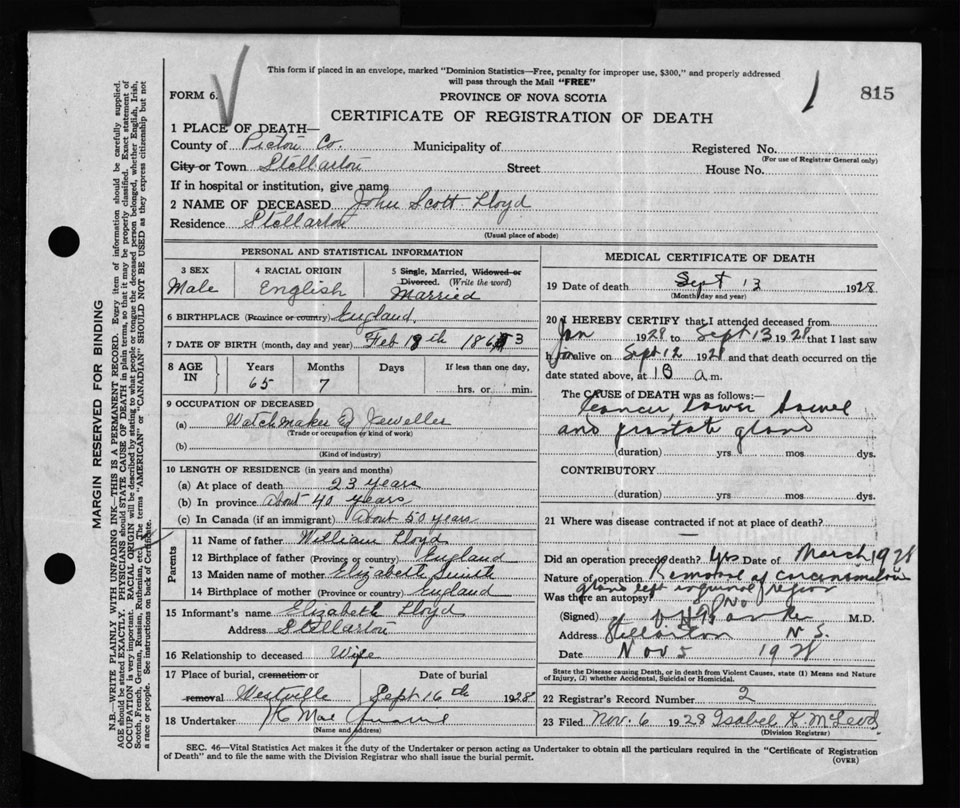 This form if placed in an envelope, marked "Dominion Statistics—Free, penalty for improper use, $300," and properly addressed
will pass through the Mail "FREE"
FORM 6.
PROVINCE OF NOVA SCOTIA
815
CERTIFICATE OF REGISTRATION OF DEATH
1 PLACE OF DEATH—
County of Pictou Co. Municipality of Registered No.
(For use of Registrar General only)
City or Town Stellarton Street House No.
If in hospital or institution, give name
2 NAME OF DECEASED John Scott Lloyd
Residence Stellarton
(Usual place of abode)
PERSONAL AND STATISTICAL INFORMATION
3 SEX 4 RACIAL ORIGIN 5 Single, Married, Widowed or
Divorced. (Write the word)
Male English Married
6 BIRTHPLACE (Province or country) England
7 DATE OF BIRTH (month, day and year) Feb
8 AGE IN Years Months Days If less than one day,
65 7 hrs. or min.
9 OCCUPATION OF DECEASED
(a) Watchmaker & Jeweller
(Trade or occupation or kind of work)
(b)
(Kind of industry)
10 LENGTH OF RESIDENCE (in years and months)
(a) At place of death 23 years
(b) In province About 40 years
(c) In Canada (if an immigrant) About 50 years
Parents
11 Name of father William Lloyd
12 Birthplace of father (Province or country) England
13 Maiden name of mother Elizabeth Smith
14 Birthplace of mother (Province or country) England
15 Informant's name Elizabeth Lloyd
Address Stellarton
16 Relationship to deceased Wife
17 Place of burial, cremation or Date of burial
removal Westville Sept 16th 1928
18 Undertaker
(Name and address)
MEDICAL CERTIFICATE OF DEATH
19 Date of death Sept 13 1928
(Month day and year)
20 I HEREBY CERTIFY that I attended deceased from
Jan 1928 to Sept 13 1928 that I last saw
him alive on Sept 12 1928 and that death occurred on the
date stated above, at a.m.
The CAUSE of DEATH was as follows:—
Cancer, lower bowel
and prostate gland
(duration) yrs mos dys.
CONTRIBUTORY
(duration) yrs mos dys.
21 Where was disease contracted if not at place of death?
Did an operation precede death? Yes Date of March 1928
Nature of operation Removal of
gland left inguinal region
Was there an autopsy? No
(Signed) M.D.
Address Stellarton N.S.
Date Nov 5 1928
State the Disease causing Death, or in death from Violent Causes, state (1) Means and Nature
of Injury, (2) whether Accidental, Suicidal or Homicidal.
22 Registrar's Record Number 2
23 Filed Nov. 6 1928 Isabel K. McLeod
(Division Registrar)
SEC. 46—Vital Statistics Act makes it the duty of the Undertaker or person acting as Undertaker to obtain all the particulars required in the "Certificate of Registration
of Death" and to file the same with the Division Registrar who shall issue the burial permit.
(OVER)
MARGIN RESERVED FOR BINDING
N.B.—WRITE PLAINLY WITH UNFADING INK—THIS IS A PERMANENT RECORD. Every item of information should be carefully supplied.
AGE should be stated EXACTLY. PHYSICIANS should STATE CAUSE OF DEATH in plain terms, so that it may be properly classified. Exact statement of
OCCUPATION is very important. RACIAL ORIGIN will be described by stating to what people or tongue the deceased person belonged, whether English, Irish,
Scotch, French, German, Russian, Ruthenian, etc. The terms "AMERICAN" or "CANADIAN" SHOULD NOT BE USED as they express citizenship but not
a race or people. See instructions on back of Certificate.